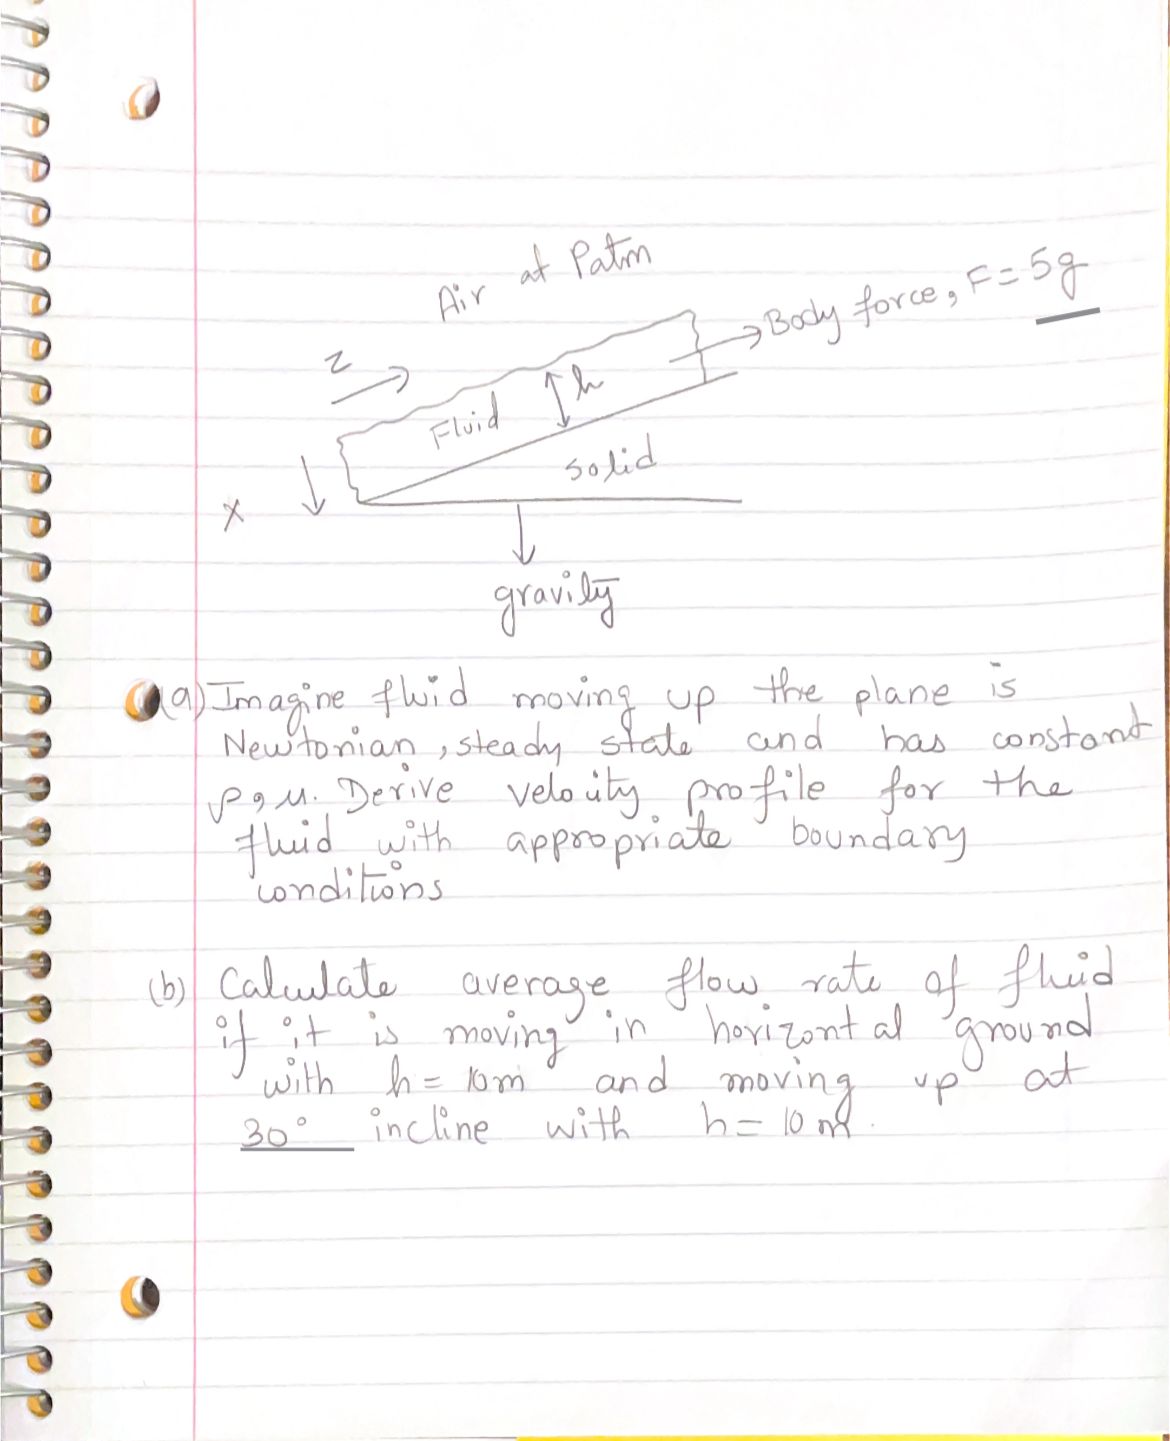 Air at Patm
Body force, F=5g
z
h
Fluid
solid
x
gravity
(a) Imagine fluid moving up the plane is
Newtonian, steady state and has constant
ρ, μ. Derive velocity profile for the
fluid with appropriate boundary
conditions
(b) Calculate average flow rate of fluid
if it is moving in horizontal ground
with h= 10m and moving up at
30° incline with h= 10 m.